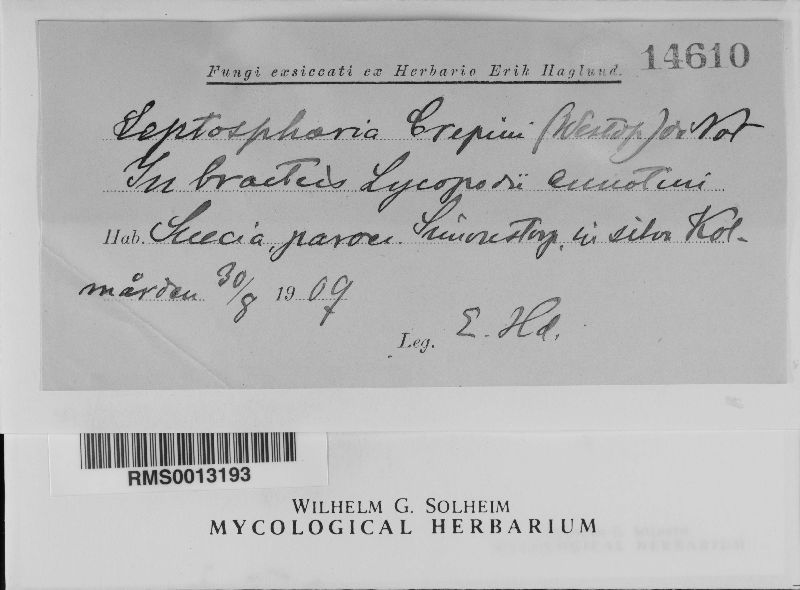 14610
Fungi exsiccati ex Herbario Erik Haglund.
Leptosphæria Crepini (Westdp) de Not
In bracteis Lycopodii annotini
Hab. Suecia, paroec. Simonstorp, in silva Kol-
mården 30/8 1909
Leg. E. Hd.
RMS0013193
WILHELM G. SOLHEIM
MYCOLOGICAL HERBARIUM